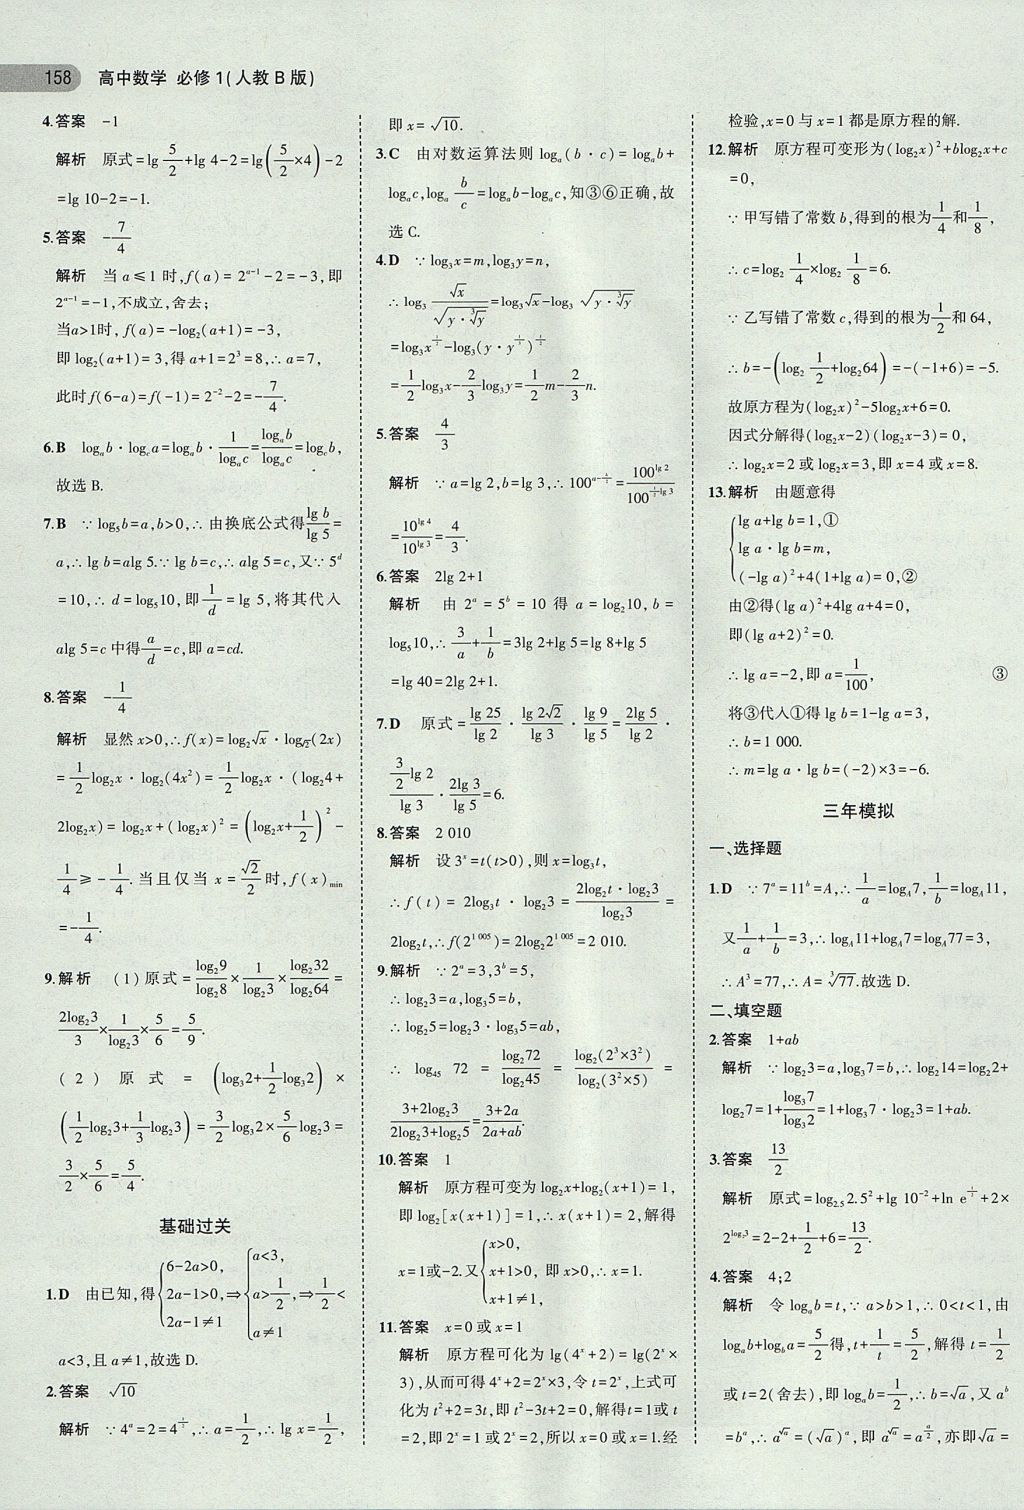 158 高中数学 必修1(人教B版)
4.答案 -1
解析 原式=lg 5/2+lg 4-2=lg(5/2×4)-2
=lg 10-2=-1.
5.答案 -7/4
解析 当a≤1时,f(a)=2^(a-1)-2=-3,即
2^(a-1)=-1,不成立,舍去;
当a>1时,f(a)=-log₂(a+1)=-3,
即log₂(a+1)=3,得a+1=2³=8,∴a=7,
此时f(6-a)=f(-1)=2^(-2)-2=-7/4.
6.B log_a b·log_c a=log_a b·1/(log_a c)=(log_a b)/(log_a c)=log_c b,
故选B.
7.B ∵log₅b=a,b>0,∴由换底公式得(lg b)/(lg 5)=
a,∴lg b=alg 5.∵lg b=c,∴alg 5=c,又∵5^d
=10,∴d=log₅10,即1/d=lg 5,将其代入
alg 5=c中得a/d=c,即a=cd.
8.答案 -1/4
解析 显然x>0,∴f(x)=log₂√x·log_√2(2x)
=1/2log₂x·log₂(4x²)=1/2log₂x·(log₂4+
2log₂x)=log₂x+(log₂x)²=(log₂x+1/2)²-
1/4≥-1/4.当且仅当x=√2/2时,f(x)min
=-1/4.
9.解析 (1)原式=(log₂9)/(log₂8)×1/(log₂3)×(log₂32)/(log₂64)=
(2log₂3)/3×1/(log₂3)×5/6=5/9.
(2)原式=(log₃2+1/2log₃2)×
(1/2log₂3+1/3log₂3)=3/2log₃2×5/6log₂3=
3/2×5/6=5/4.
基础过关
1.D 由已知,得{6-2a>0, 2a-1>0, 2a-1≠1⇒{a<3, a>1/2, a≠1⇒1/2<
a<3,且a≠1,故选D.
2.答案 √10
解析 ∵4^a=2=4^(1/2),∴a=1/2,∴lg x=1/2,
即x=√10.
3.C 由对数运算法则log_a(b·c)=log_a b+
log_a c,log_a b/c=log_a b-log_a c,知③⑥正确,故
选C.
4.D ∵log₃x=m,log₃y=n,
∴log₃ √x/√(y·∛y)=log₃√x-log₃√(y·∛y)
=log₃x^(1/2)-log₃(y·y^(1/3))^(1/2)
=1/2log₃x-2/3log₃y=1/2m-2/3n.
5.答案 4/3
解析 ∵a=lg 2,b=lg 3,∴100^(a-½b)=100^(lg 2)/100^(½lg 3)
=10^(lg 4)/10^(lg 3)=4/3.
6.答案 2lg 2+1
解析 由2^a=5^b=10得a=log₂10,b=
log₅10,∴3/a+1/b=3lg 2+lg 5=lg 8+lg 5
=lg 40=2lg 2+1.
7.D 原式=(lg 25)/(lg 2)·(lg 2√2)/(lg 3)·(lg 9)/(lg 5)=(2lg 5)/(lg 2)·
(3/2 lg 2)/(lg 3)·(2lg 3)/(lg 5)=6.
8.答案 2 010
解析 设3^x=t(t>0),则x=log₃t,
∴f(t)=2log₃t·log₂3=(2log₂t·log₂3)/(log₂3)=
2log₂t,∴f(2^(1 005))=2log₂2^(1 005)=2 010.
9.解析 ∵2^a=3,3^b=5,
∴log₂3=a,log₃5=b,
∴log₂5=log₂3·log₃5=ab,
∴log₄₅ 72=(log₂72)/(log₂45)=(log₂(2³×3²))/(log₂(3²×5))=
(3+2log₂3)/(2log₂3+log₂5)=(3+2a)/(2a+ab).
10.答案 1
解析 原方程可变为log₂x+log₂(x+1)=1,
即log₂[x(x+1)]=1,∴x(x+1)=2,解得
x=1或-2.又{x>0, x+1>0, x+1≠1,即x>0,∴x=1.
11.答案 x=0或x=1
解析 原方程可化为lg(4^x+2)=lg(2^x×
3),从而可得4^x+2=2^x×3,令t=2^x,上式可
化为t²+2=3t,即t²-3t+2=0,解得t=1或t
=2,即2^x=1或2^x=2,所以x=0或x=1.经
检验,x=0与x=1都是原方程的解.
12.解析 原方程可变形为(log₂x)²+blog₂x+c
=0,
∵甲写错了常数b,得到的根为1/4和1/8,
∴c=log₂ 1/4×log₂ 1/8=6.
∵乙写错了常数c,得到的根为1/2和64,
∴b=-(log₂ 1/2+log₂64)=-(-1+6)=-5.
故原方程为(log₂x)²-5log₂x+6=0.
因式分解得(log₂x-2)(log₂x-3)=0,
∴log₂x=2或log₂x=3,即x=4或x=8.
13.解析 由题意得
{lg a+lg b=1,①
lg a·lg b=m,
(-lg a)²+4(1+lg a)=0,②
由②得(lg a)²+4lg a+4=0,
即(lg a+2)²=0.
∴lg a=-2,即a=1/100, ③
将③代入①得lg b=1-lg a=3,
∴b=1 000.
∴m=lg a·lg b=(-2)×3=-6.
三年模拟
一、选择题
1.D ∵7^a=11^b=A,∴1/a=log_A7,1/b=log_A11,
又1/a+1/b=3,∴log_A11+log_A7=log_A77=3,
∴A³=77,∴A=∛77.故选D.
二、填空题
2.答案 1+ab
解析 ∵log₂3=a,log₃7=b,∴log₂14=log₂2+
log₂7=1+(log₃7)/(log₃2)=1+log₃7·log₂3=1+ab.
3.答案 13/2
解析 原式=log₂.₅2.5²+lg 10^(-2)+ln e^(1/2)+2×
2^(log₂3)=2-2+1/2+6=13/2.
4.答案 4;2
解析 令log_a b=t,∵a>b>1,∴0<t<1,由
log_a b+log_b a=5/2得,t+1/t=5/2,解得t=1/2
或t=2(舍去),即log_a b=1/2,∴b=√a,又a^b
=b^a,∴a^√a=(√a)^a,即a^√a=a^(a/2),亦即√a=